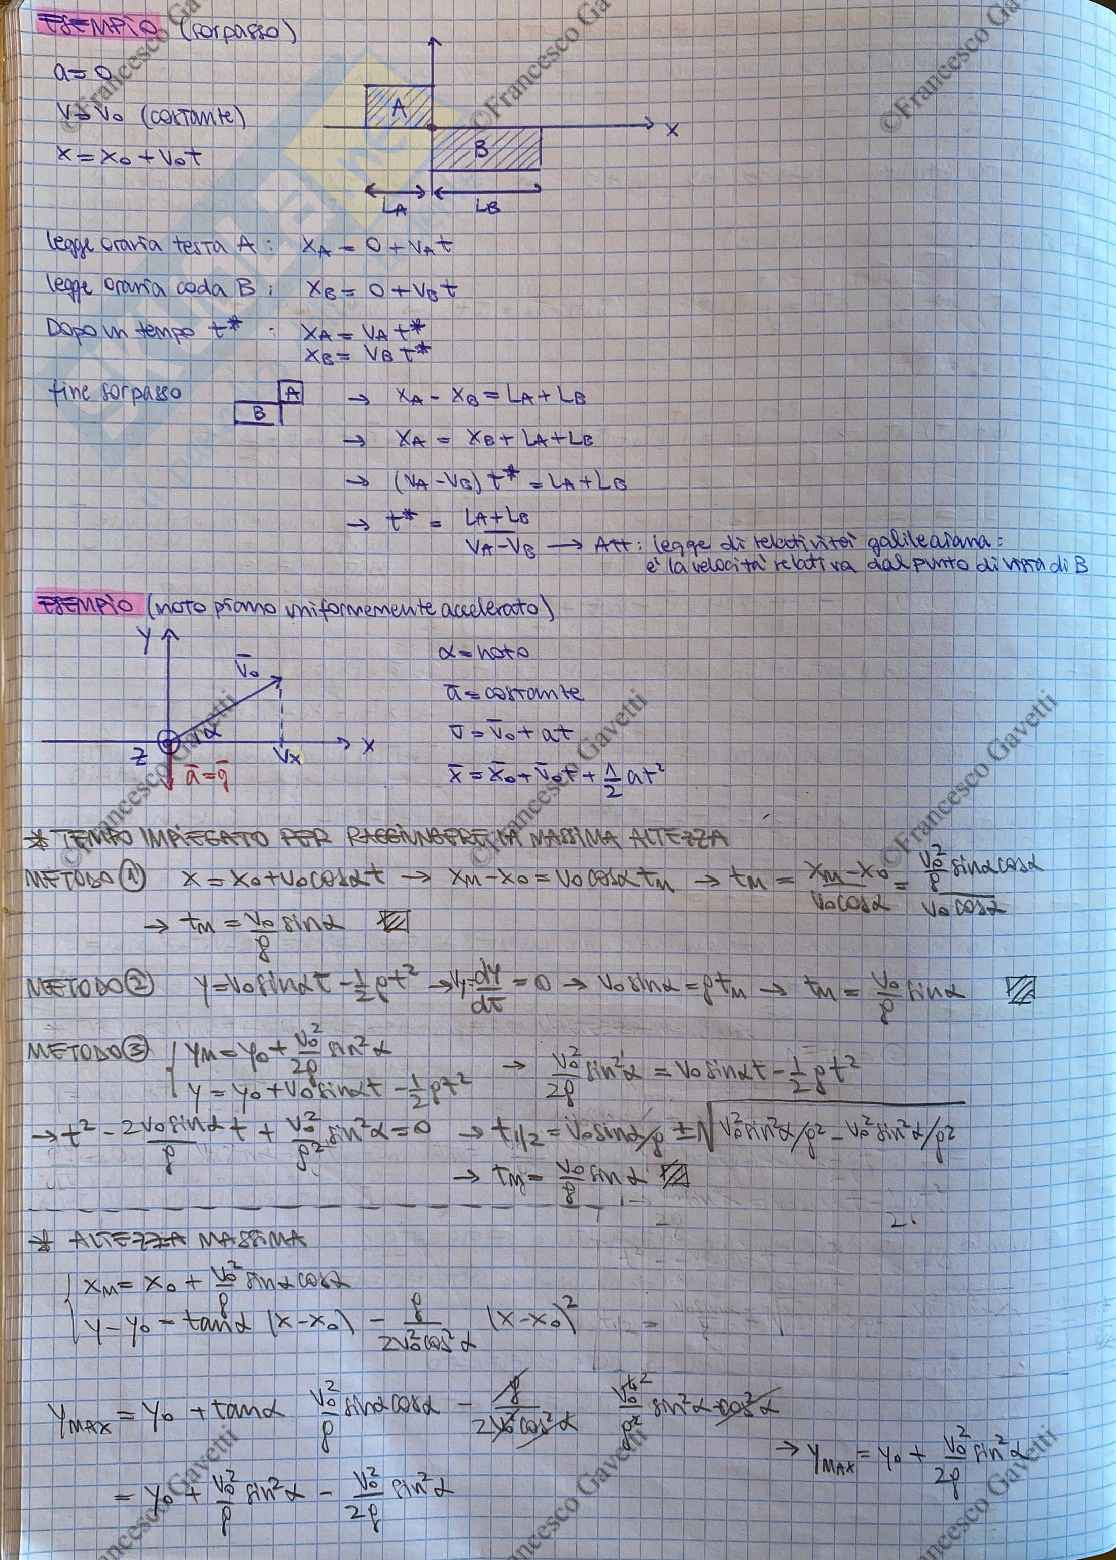 ESEMPIO (sorpasso)
a = 0
v = v₀ (costante)
x = x₀ + v₀t
A
B
x
LA
LB
legge oraria testa A : xA = 0 + vAt
legge oraria coda B : xB = 0 + vBt
Dopo un tempo t* : xA = vA t*
xB = vB t*
fine sorpasso A B → xA - xB = LA + LB
→ xA = xB + LA + LB
→ (vA - vB) t* = LA + LB
→ t* = (LA + LB)/(vA - vB) → Att: legge di relatività galileiana:
è la velocità relativa dal punto di vista di B
ESEMPIO (moto piano uniformemente accelerato)
y
v̄₀
α
z
vx
x
ā = ḡ
α = noto
ā = costante
v̄ = v̄₀ + at
x̄ = x̄₀ + v̄₀t + 1/2 at²
* TEMPO IMPIEGATO PER RAGGIUNGERE LA MASSIMA ALTEZZA
METODO ① x = x₀ + v₀cosαt → xM - x₀ = v₀cosα tM → tM = (xM - x₀)/(v₀cosα) = (v₀²/g sinαcosα)/(v₀cosα)
→ tM = v₀/g sinα
METODO ② y = v₀sinαt - 1/2 gt² → vy = dy/dt = 0 → v₀sinα = gtM → tM = v₀/g sinα
METODO ③ { yM = y₀ + v₀²/2g sin²α
y = y₀ + v₀sinαt - 1/2 gt² → v₀²/2g sin²α = v₀sinαt - 1/2 gt²
→ t² - 2v₀sinα/g t + v₀²/g² sin²α = 0 → t1/2 = v₀sinα/g ± √(v₀²sin²α/g² - v₀²sin²α/g²)
→ tM = v₀/g sinα
* ALTEZZA MASSIMA
{ xM = x₀ + v₀²/g sinαcosα
y - y₀ = tanα (x - x₀) - g/(2v₀²cos²α) (x - x₀)²
yMAX = y₀ + tanα v₀²/g sinαcosα - g/(2v₀²cos²α) v₀⁴/g² sin²α cos²α
= y₀ + v₀²/g sin²α - v₀²/2g sin²α
→ yMAX = y₀ + v₀²/2g sin²α
©Francesco Gavetti
©Francesco Gavetti
©Francesco Gavetti
©Francesco Gavetti
©Francesco Gavetti
©Francesco Gavetti
Francesco Gavetti
Francesco Gavetti
Francesco Gavetti